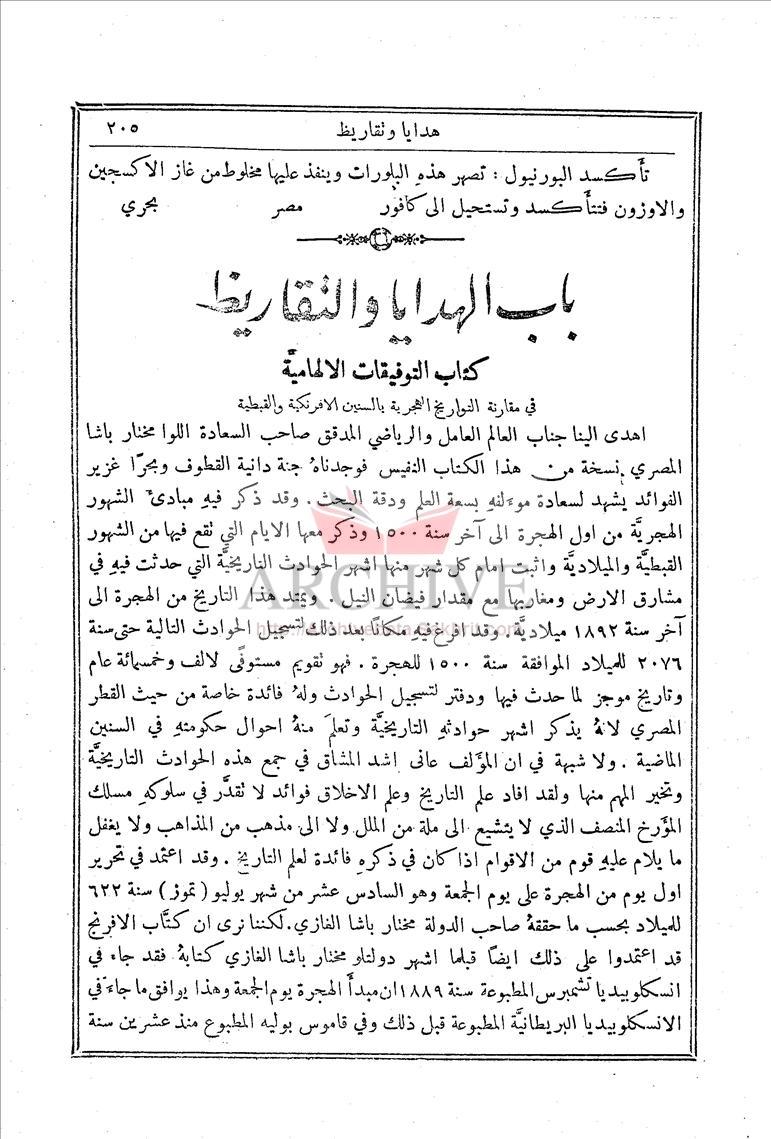 هدايا وتقاريظ ٢٠٥
تأكسد البورنيول : تصهر هذهِ البلورات وينفذ عليها مخلوط من غاز الاكسجين
والاوزون فتتأكسد وتستحيل الى كافور مصر بحري
باب الهدايا والتقاريظ
كتاب التوفيقات الالهاميَّة
في مقارنة التواريخ الهجرية بالسنين الافرنكية والقبطية
اهدى الينا جناب العالم العامل والرياضي المدقق صاحب السعادة اللوا مختار باشا
المصري نسخة من هذا الكتاب النفيس فوجدناهُ جنة دانية القطوف وبحرًا غزير
الفوائد يشهد لسعادة موءلفهِ بسعة العلم ودقة البحث . وقد ذكر فيهِ مبادئ الشهور
الهجريَّة من اول الهجرة الى آخر سنة ١٥٠٠ وذكر معها الايام التي تقع فيها من الشهور
القبطيَّة والميلاديَّة واثبت امام كل شهر منها اشهر الحوادث التاريخيَّة التي حدثت فيهِ في
مشارق الارض ومغاربها مع مقدار فيضان النيل . ويمتد هذا التاريخ من الهجرة الى
آخر سنة ١٨٩٢ ميلاديَّة . وقد افرغ فيهِ مكانًا بعد ذلك لتسجيل الحوادث التالية حتى سنة
٢٠٧٦ للميلاد الموافقة سنة ١٥٠٠ للهجرة . فهو تقويم مستوفًى لالف وخمسمائة عام
وتاريخ موجز لما حدث فيها ودفتر لتسجيل الحوادث ولهُ فائدة خاصة من حيث القطر
المصري لانهُ يذكر اشهر حوادثهِ التاريخيَّة وتعلم منهُ احوال حكومتهِ في السنين
الماضية . ولا شبهة في ان المؤلف عانى اشد المشاق في جمع هذه الحوادث التاريخيَّة
وتخير المهم منها ولقد افاد علم التاريخ وعلم الاخلاق فوائد لا تقدَّر في سلوكهِ مسلك
المؤرخ المنصف الذي لا يتشيع الى ملة من الملل ولا الى مذهب من المذاهب ولا يغفل
ما يلام عليهِ قوم من الاقوام اذا كان في ذكرهِ فائدة لعلم التاريخ . وقد اعتمد في تحرير
اول يوم من الهجرة على يوم الجمعة وهو السادس عشر من شهر يوليو ( تموز ) سنة ٦٢٢
للميلاد بحسب ما حققهُ صاحب الدولة مختار باشا الغازي . لكننا نرى ان كتَّاب الافرنج
قد اعتمدوا على ذلك ايضًا قبلما اشهر دولتلو مختار باشا الغازي كتابهُ فقد جاء في
انسكلوبيديا تشمبرس المطبوعة سنة ١٨٨٩ ان مبدأ الهجرة يوم الجمعة وهذا يوافق ما جاء في
الانسكلوبيديا البريطانيَّة المطبوعة قبل ذلك وفي قاموس بوليه المطبوع منذ عشرين سنة
ARCHIVE